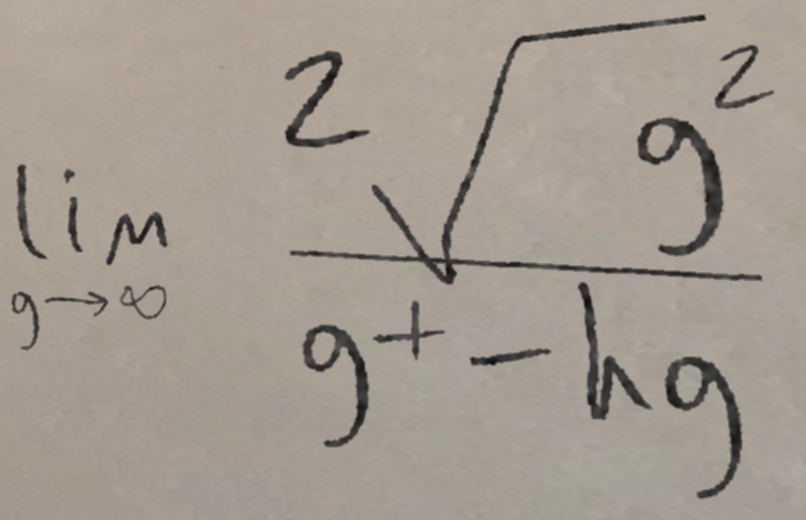 lim g→∞ 2√g² / g⁺ - hg